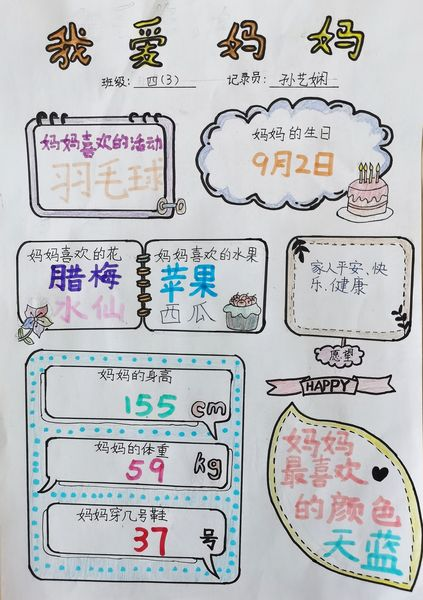 我爱妈妈
班级：四(3) 记录员：孙艺娴
妈妈喜欢的活动
羽毛球
妈妈的生日
9月2日
妈妈喜欢的花
腊梅
水仙
妈妈喜欢的水果
苹果
西瓜
家人平安、快
乐、健康
愿望
HAPPY
妈妈的身高
155 cm
妈妈的体重
59 kg
妈妈穿几号鞋
37 号
妈妈
最喜欢
的颜色
天蓝